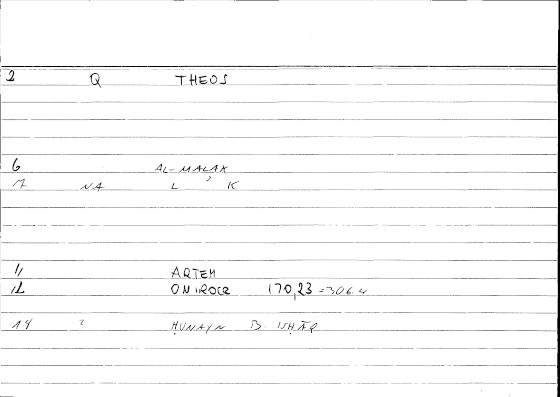 2 Q THEOS
6 AL-MALAK
7 NA L ʾ K
11 ARTEM
12 ONIROCR 170,23 = 306
14 ? ḤUNAYN B ISḤĀQ